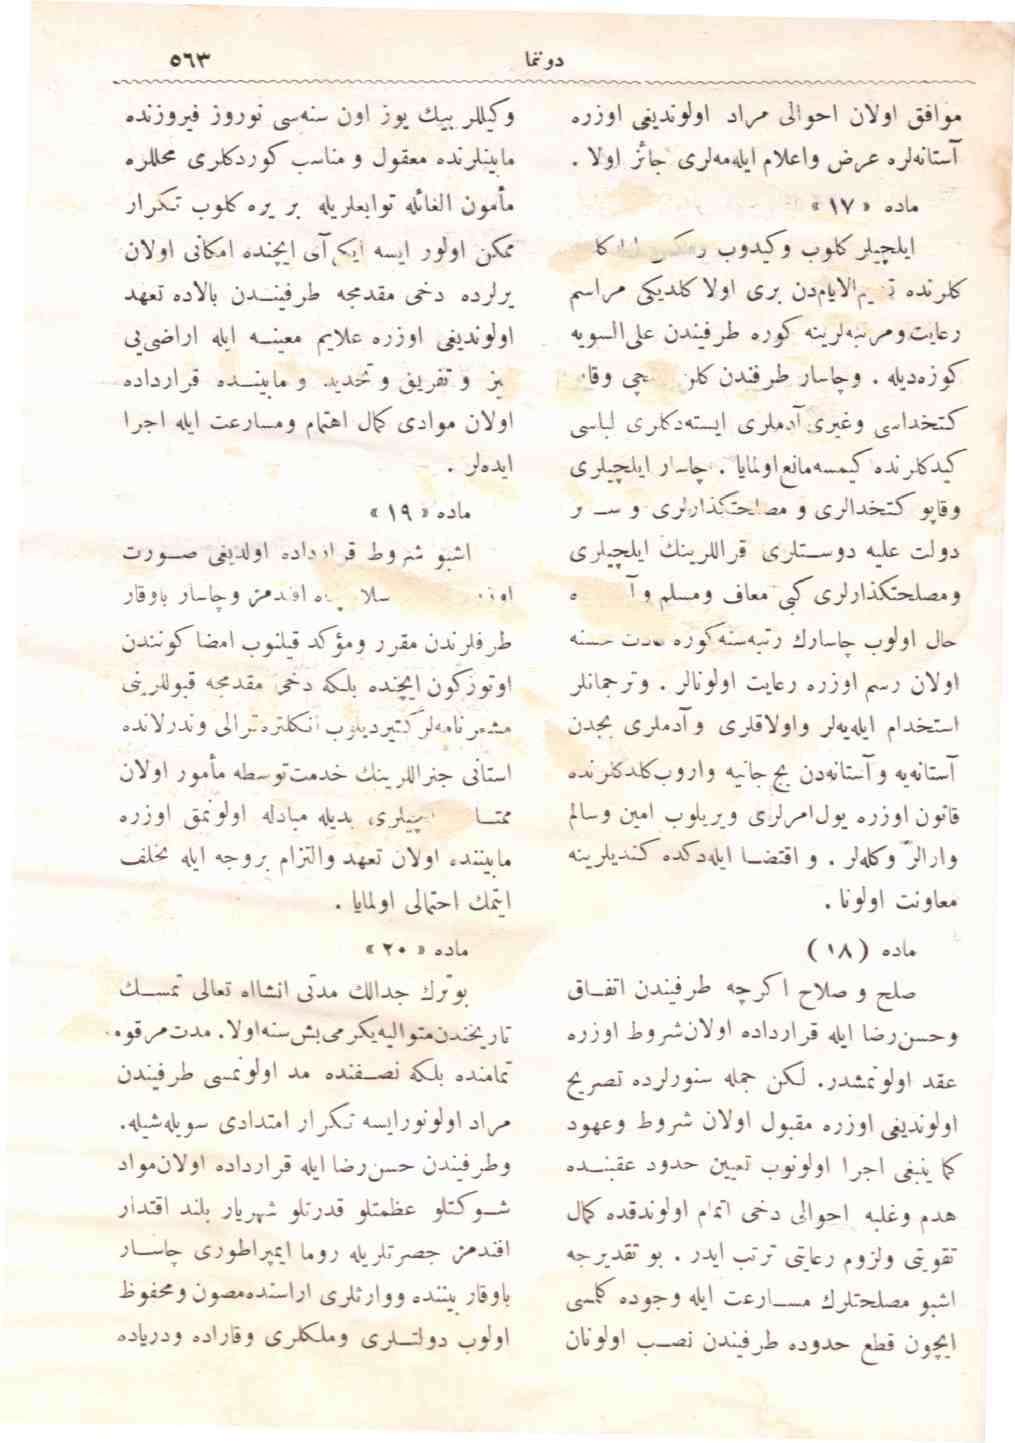 دوتنما
٥٦٣
موافق اولان احوالى مراد اولونديغى اوزره
آستانه‌لره عرض واعلام ايله‌مه‌لرى جائز اولا .
ماده « ١٧ »
ايلچيلر كلوب وكيدوب
كلرنده الايام‌دن برى اولا كلديكى مراسم
رعايت ومرتبه‌لرينه كوره طرفيندن على السويه
كوزه‌ديله . وچاسار طرفندن
كتخداسى وغيرى آدملرى ايسته‌دكلرى لباسى
كيدكلرنده كيمسه مانع اولمايا . چاسار ايلچيلرى
وقاپو كتخدالرى و مصلحتكذارلرى و
دولت عليه دوستلرى قراللرينك ايلچيلرى
ومصلحتكذارلرى كبى معاف ومسلم
حال اولوب چاسارك رتبه‌سنه كوره حسنه
اولان رسم اوزره رعايت اولونالر . وترجمانلر
استخدام ايله‌يه‌لر واولاقلرى وآدملرى بجدن
آستانه‌يه وآستانه‌دن بج جانبه واروب كلدكلرنده
قانون اوزره يول امرلرى ويريلوب امين وسالم
وارالر وكله‌لر . و اقتضا ايله‌دكده كنديلرينه
معاونت اولونا .
ماده ( ١٨ )
صلح و صلاح اكرچه طرفيندن اتفاق
وحسن رضا ايله قرارداده اولان شروط اوزره
عقد اولونمشدر. لكن جمله سنورلرده تصريح
اولونديغى اوزره مقبول اولان شروط وعهود
كما ينبغى اجرا اولونوب تعيين حدود عقبنده
هدم وغلبه احوالى دخى اتمام اولوندقده كمال
تقويتى ولزوم رعايتى ترتب ايدر . بو تقديرجه
اشبو مصلحتلرك مسارعت ايله وجوده كلمسى
ايچون قطع حدوده طرفيندن نصب اولونان
وكيللر بيك يوز اون سنه‌سى نوروز فيروزنده
مابينلرنده معقول و مناسب كوردكلرى محللره
مأمون الغائله توابعلريله بر يره كلوب تكرار
ممكن اولور ايسه ايكى آى ايچنده امكانى اولان
يرلرده دخى مقدمجه طرفيندن بالاده تعهد
اولونديغى اوزره علايم معينه ايله اراضى‌يى
و تفريق و تحديد و مابينده قرارداده
اولان موادى كمال اهتمام ومسارعت ايله اجرا
ايده‌لر .
ماده « ١٩ »
اشبو شروط قرارداده اولديغى صورت
افندمز وچاسار باوقار
طرفلرندن مقرر ومؤكد قيلنوب امضا كونندن
اوتوز كون ايچنده بلكه دخى مقدمجه قبوللرينى
مشعر نامه‌لر كتيرديلوب انكلتره قرالى وندرلانده
استانى جنراللرينك خدمت توسطه مأمور اولان
ايلچيلرى بديله مبادله اولونمق اوزره
مابيننده اولان تعهد والتزام بروجه ايله تخلف
ايتمك احتمالى اولمايا .
ماده « ٢٠ »
بو ترك جدالك مدتى انشااه تعالى تمسك
تاريخندن متواليه يكرمى بش سنه اولا. مدت مرقومه
تمامنده بلكه نصفنده مد اولونمسى طرفيندن
مراد اولونور ايسه تكرار امتدادى سويله‌شيله.
وطرفيندن حسن رضا ايله قرارداده اولان مواد
شوكتلو عظمتلو قدرتلو شهريار بلند اقتدار
افندمز حصرتلريله روما ايمپراطورى چاسار
باوقار بيننده ووارثلرى اراسنده مصون ومحفوظ
اولوب دولتلرى وملكلرى وقاراده ودرياده